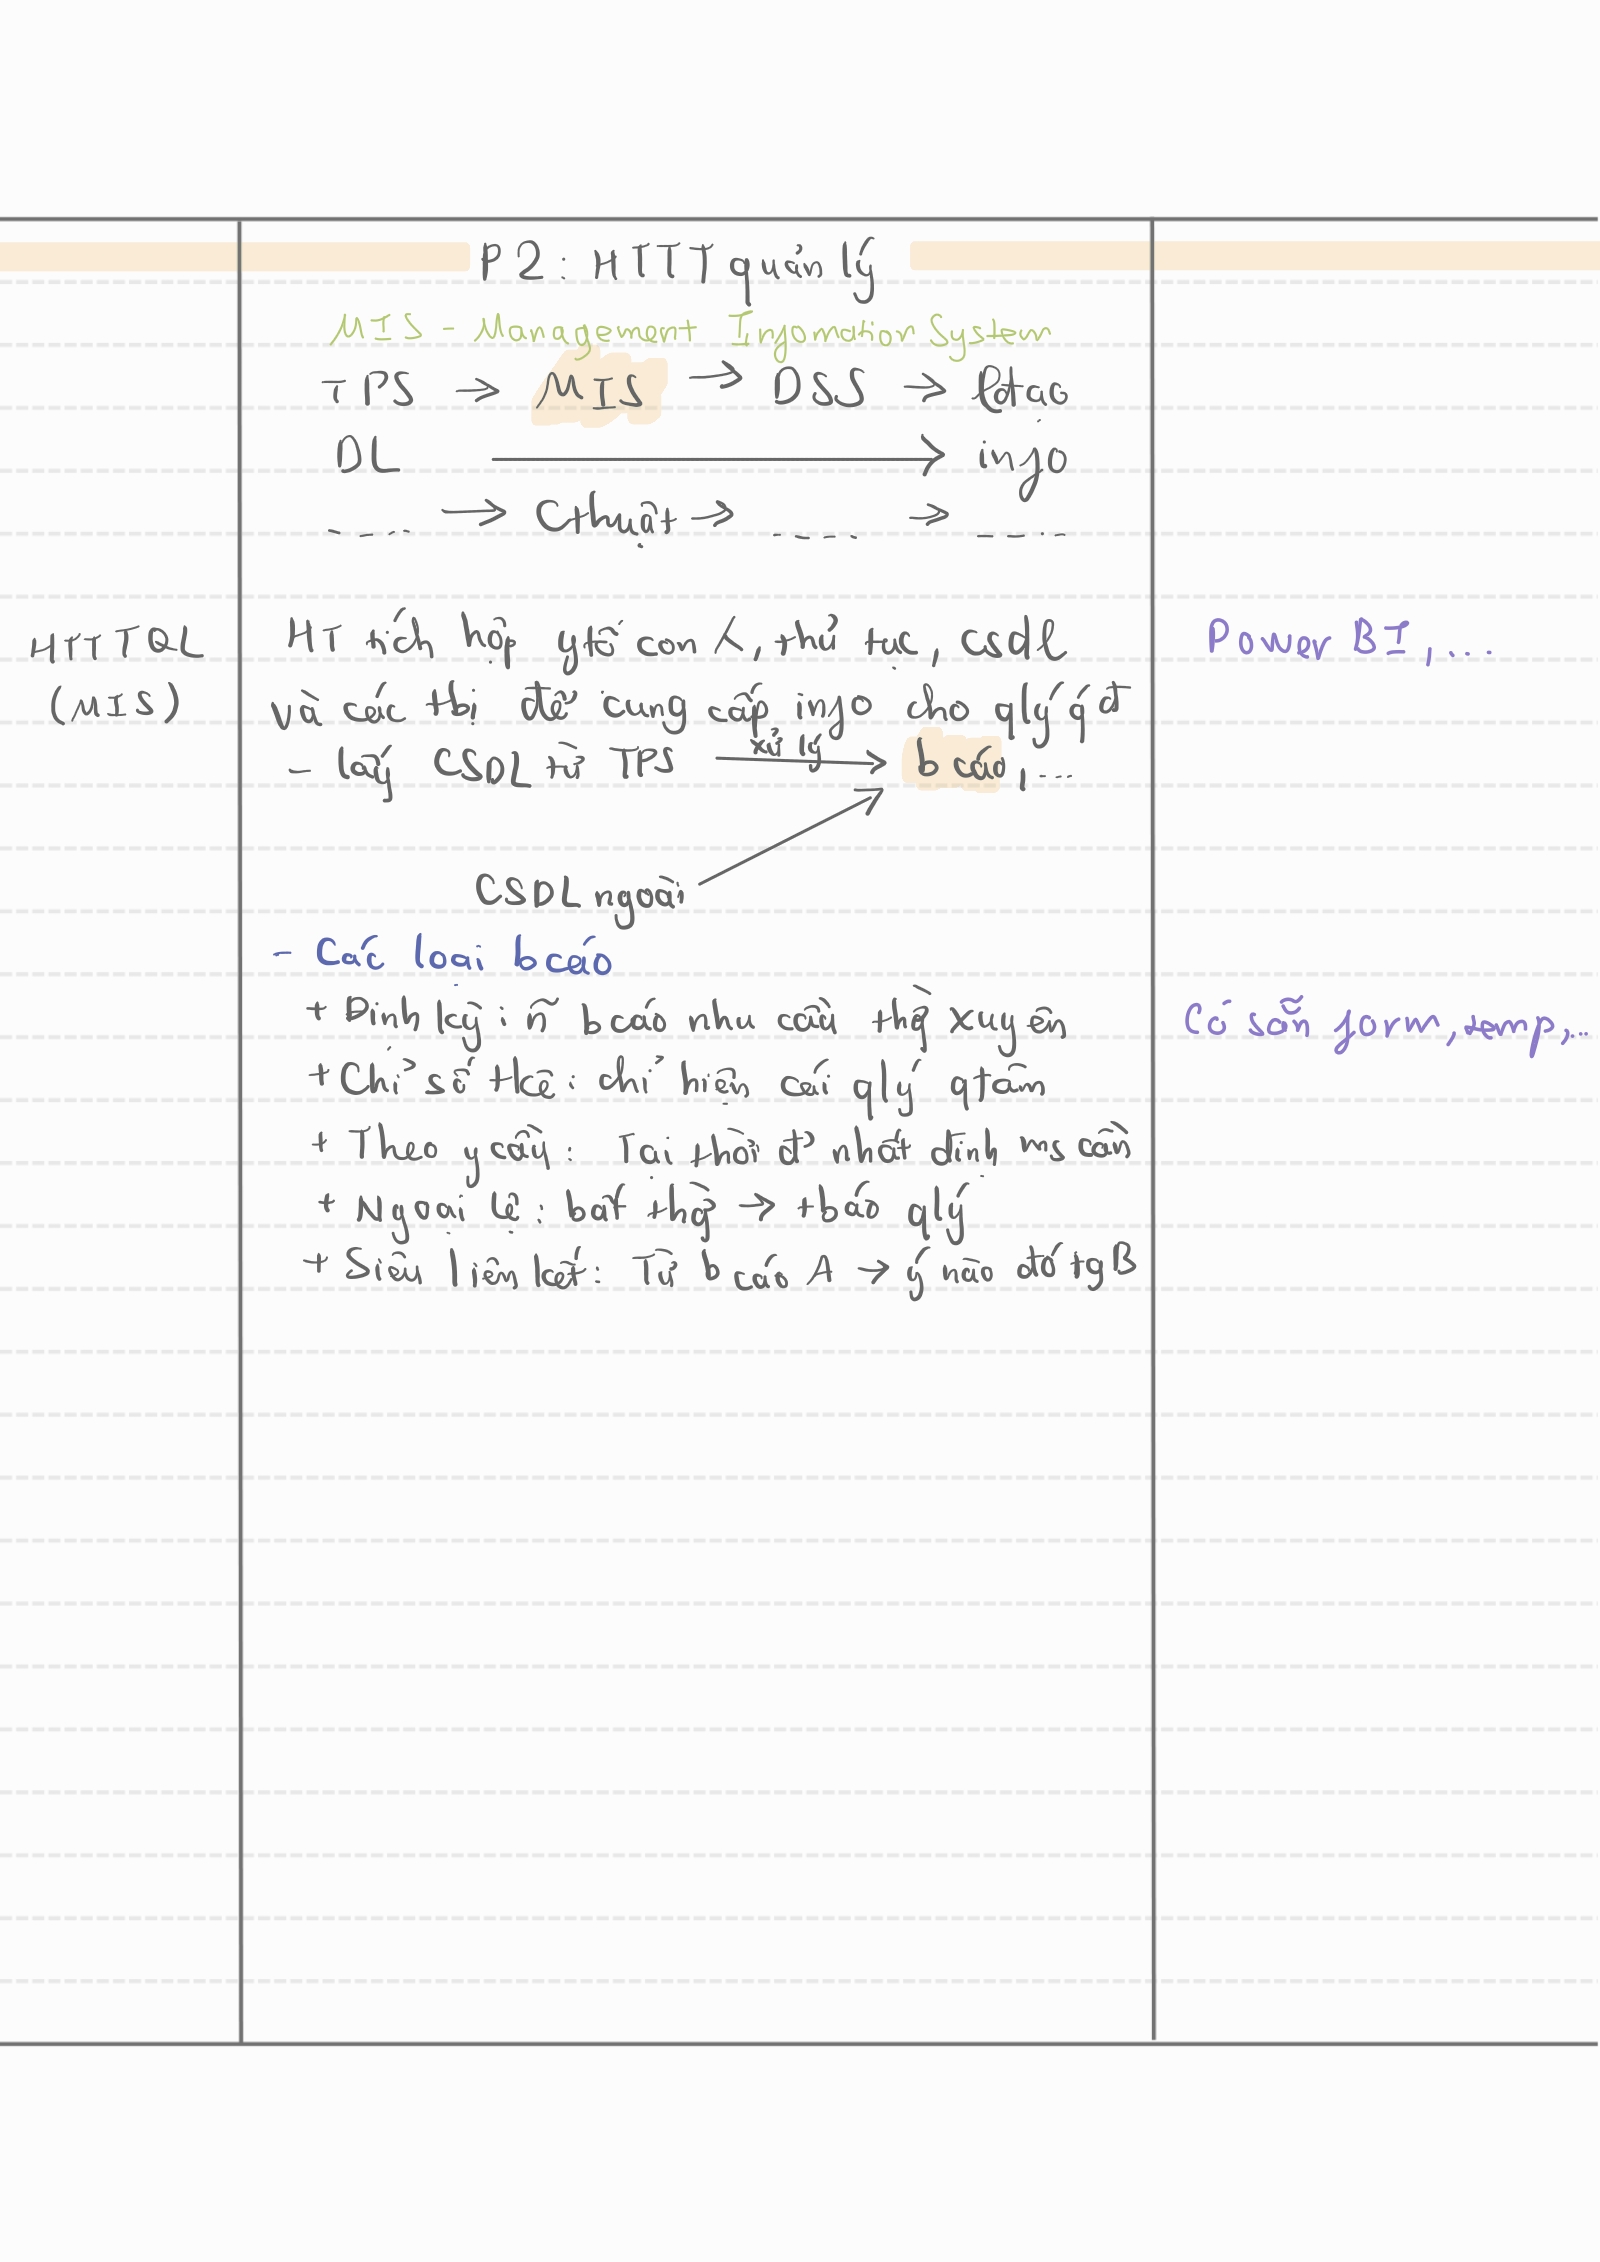 P2: HTTT quản lý
MIS - Management Injomation System
TPS → MIS → DSS → lđtạo
DL → injo
.... → Cthuật → .... → ....
HTTTQL
(MIS)
HT tích hợp ytố con λ, thủ tục, csdl
và các tbị để cung cấp injo cho qlý qđ
- lấy CSDL từ TPS xử lý → bcáo, ...
CSDL ngoài
Power BI, ...
- Các loại bcáo
+ Định kỳ: ñ bcáo nhu cầu thg̀ xuyên
+ Chỉ số tkê: chỉ hiện cái qlý qtâm
+ Theo ycầu: Tại thời đ' nhất định ms cần
+ Ngoại lệ: bất thg̀ → tbáo qlý
+ Siêu liên kết: Từ bcáo A → ý nào đó tg B
Có sẵn form, temp, ...